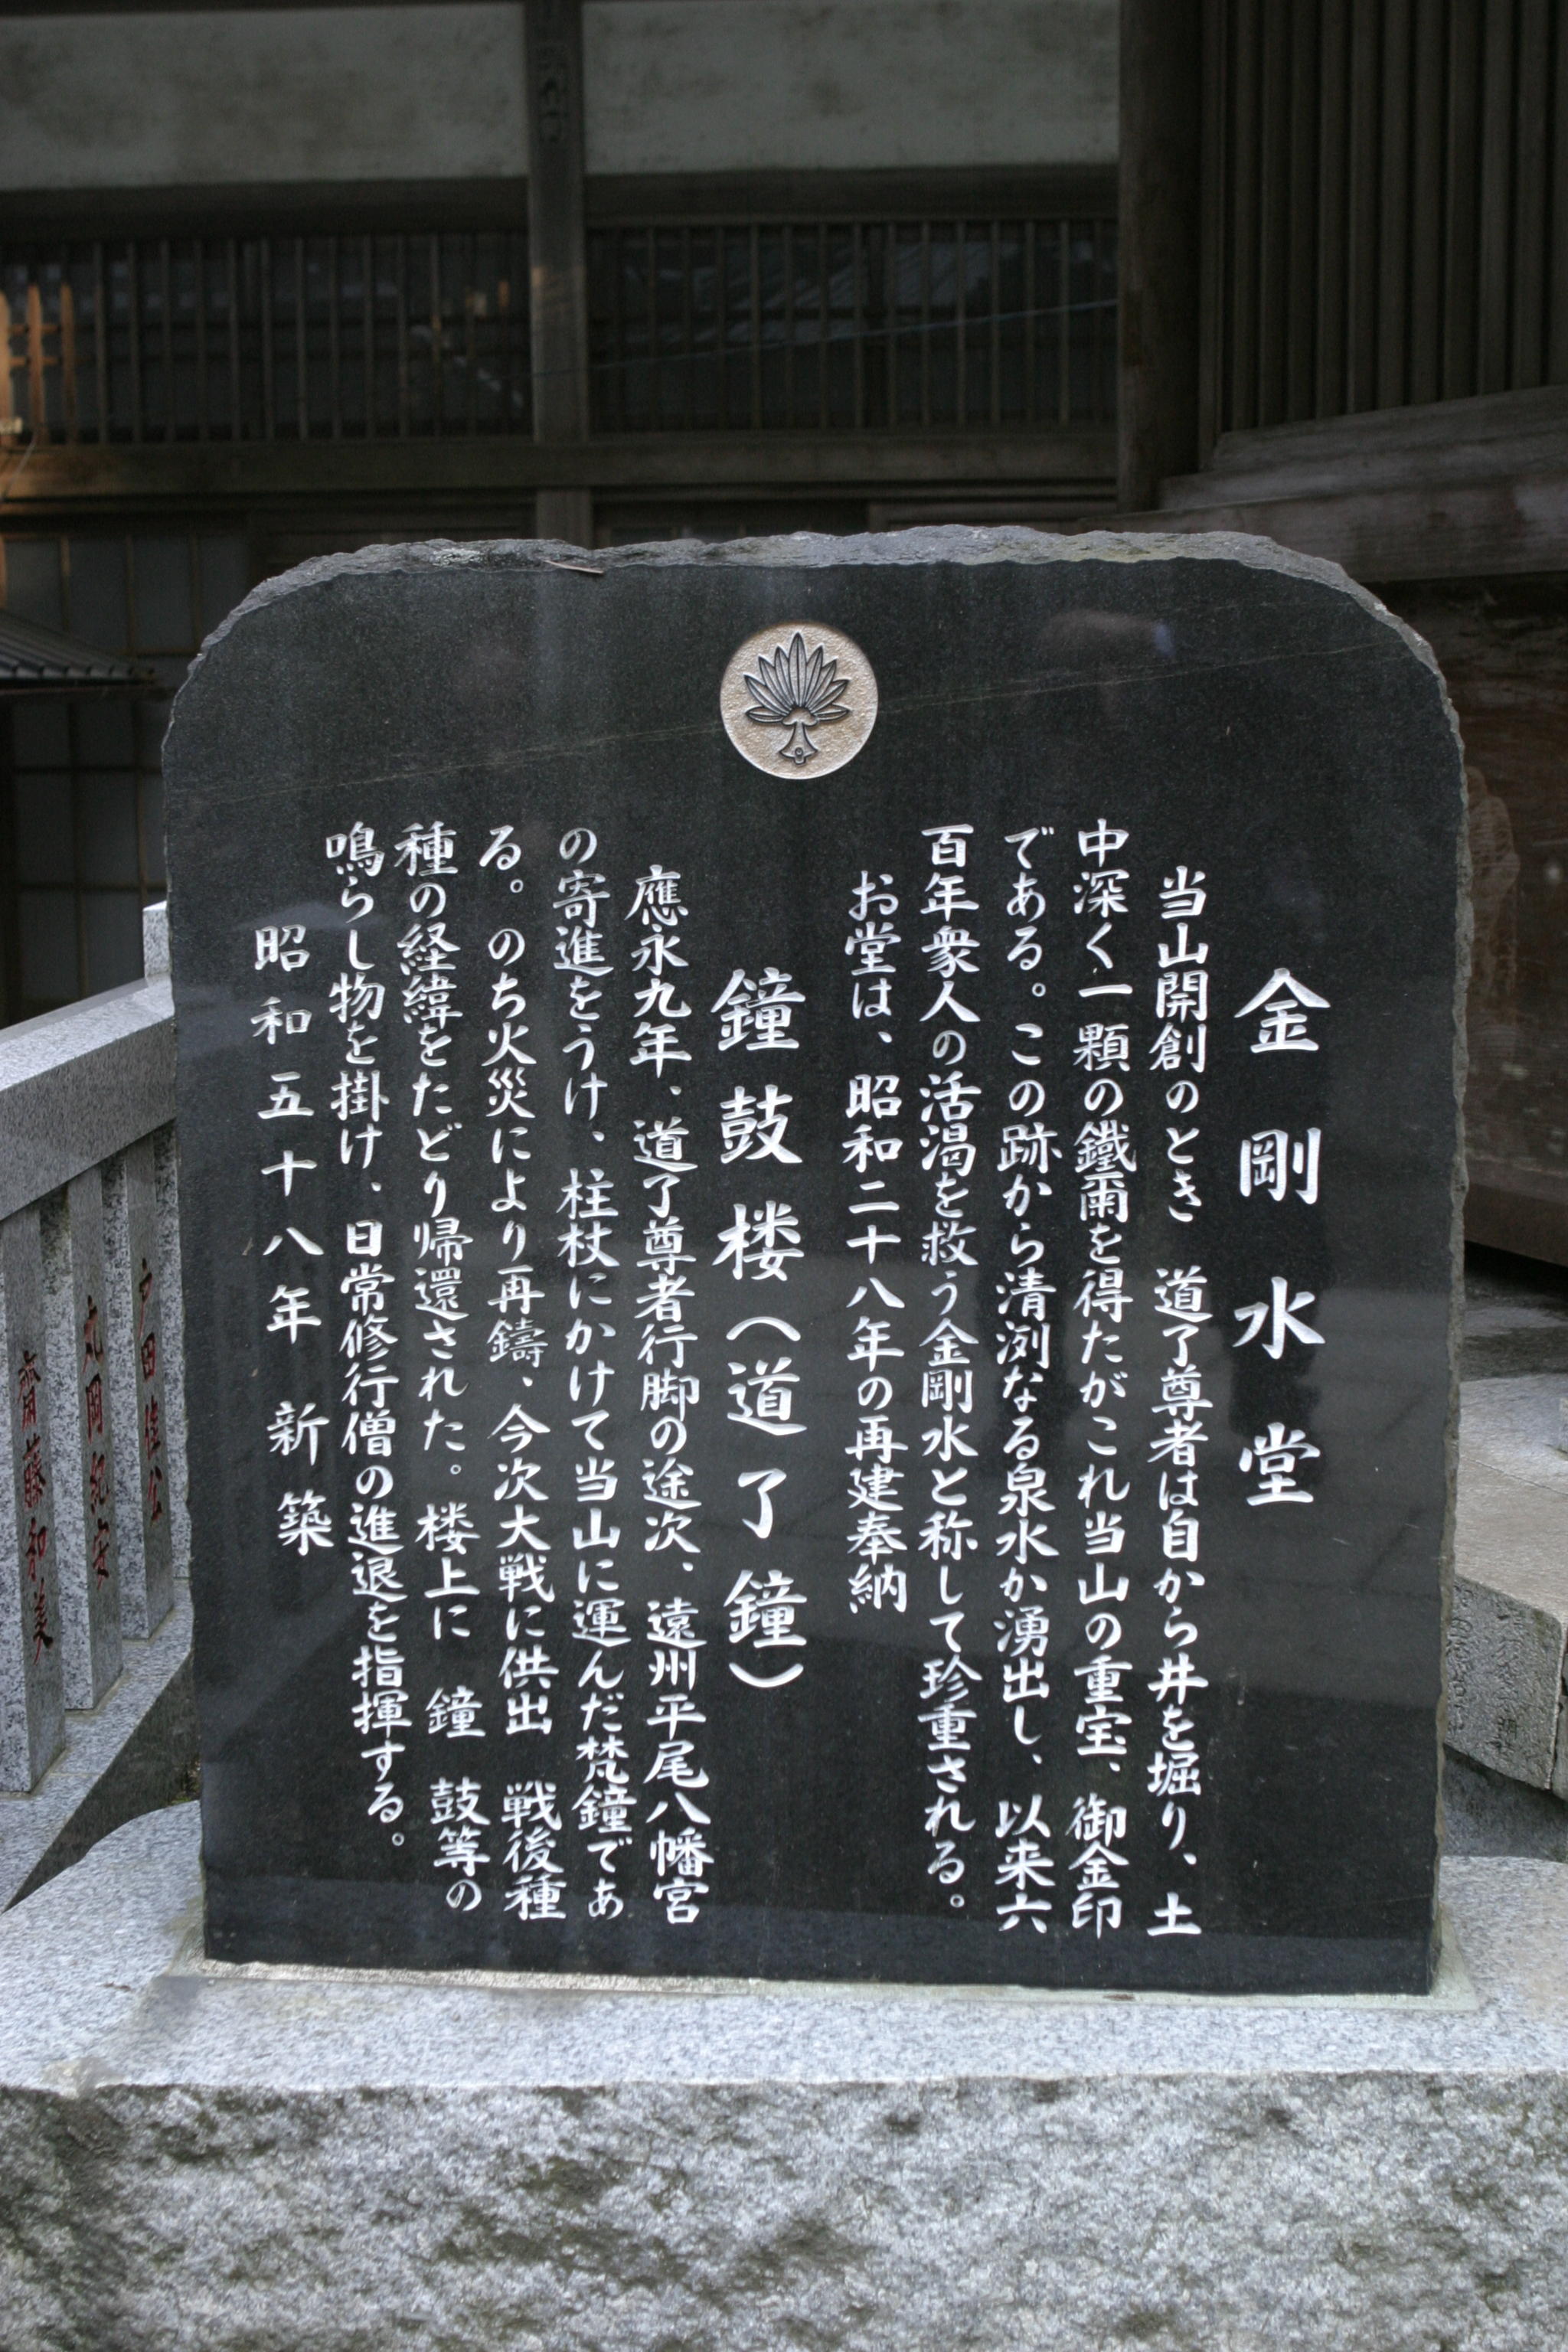 金剛水堂
当山開創のとき　道了尊者は自から井を堀り、土
中深く一顆の鐵璽を得たがこれ当山の重宝、御金印
である。この跡から清冽なる泉水か湧出し、以来六
百年衆人の活渇を救う金剛水と称して珍重される。
お堂は、昭和二十八年の再建奉納
鐘鼓楼（道了鐘）
應永九年、道了尊者行脚の途次、遠州平尾八幡宮
の寄進をうけ、柱杖にかけて当山に運んだ梵鐘であ
る。のち火災により再鑄、今次大戦に供出　戦後種
種の経緯をたどり帰還された。楼上に　鐘　鼓等の
鳴らし物を掛け、日常修行僧の進退を指揮する。
昭和五十八年　新築
戸田
丸岡紀安
齋藤和美